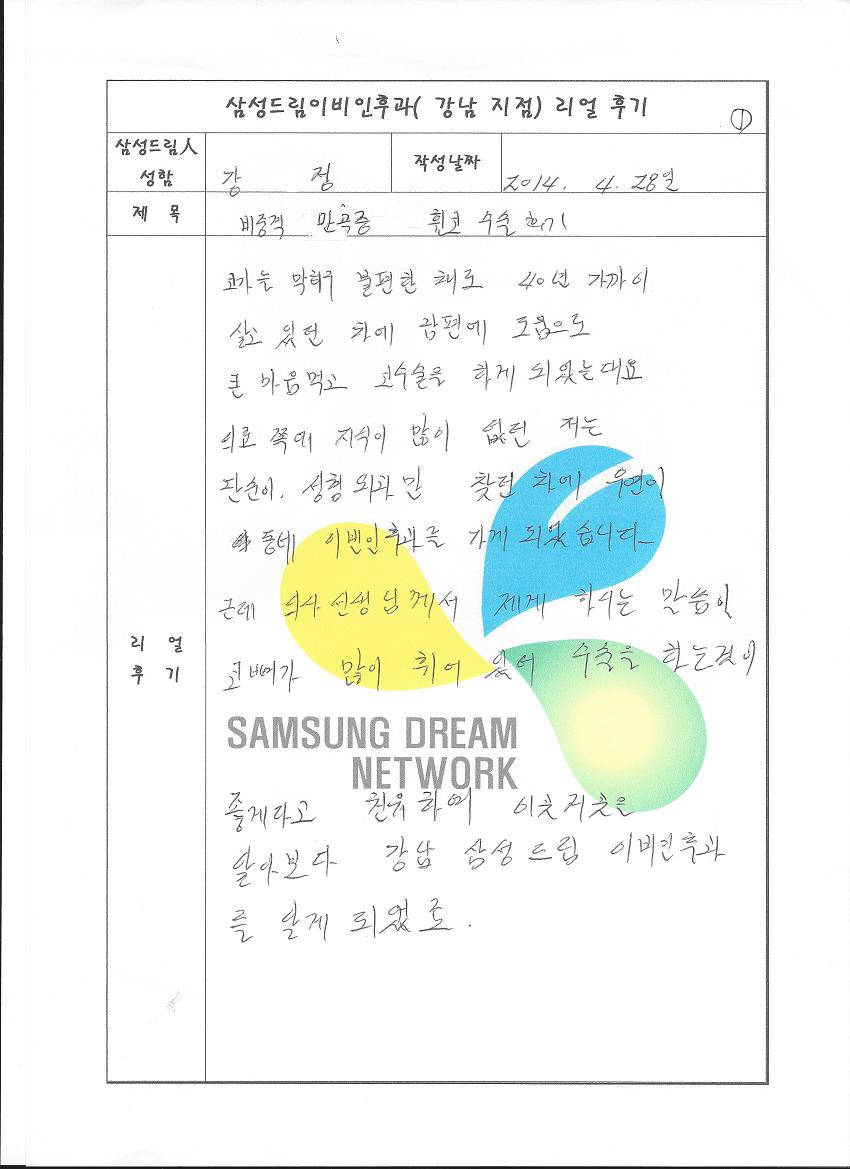 삼성드림이비인후과( 강남 지점) 리얼 후기
①
삼성드림人
성함
강 정
작성날짜
2014. 4. 28일
제 목
비중격 만곡증 휜코 수술 후기
코가는 막혀구 불편한 채로 40년 가까이
살고 있던 차에 남편에 도움으로
큰 마음먹고 코수술을 하게 되었는대요
의료 쪽에 지식이 많이 없던 저는
단순이. 성형외과만 찾던 차에 우연이
동네 이빈인후과를 가게 되었습니다_
근데 의사 선생님께서 제게 하시는 말씀이
코뼈가 많이 휘어 있어 수술을 하는것이
리 얼
후 기
SAMSUNG DREAM
NETWORK
좋게다고 권유하여 이곳저곳을
알아보다 강남 삼성드림 이비인후과
를 알게 되었죠.